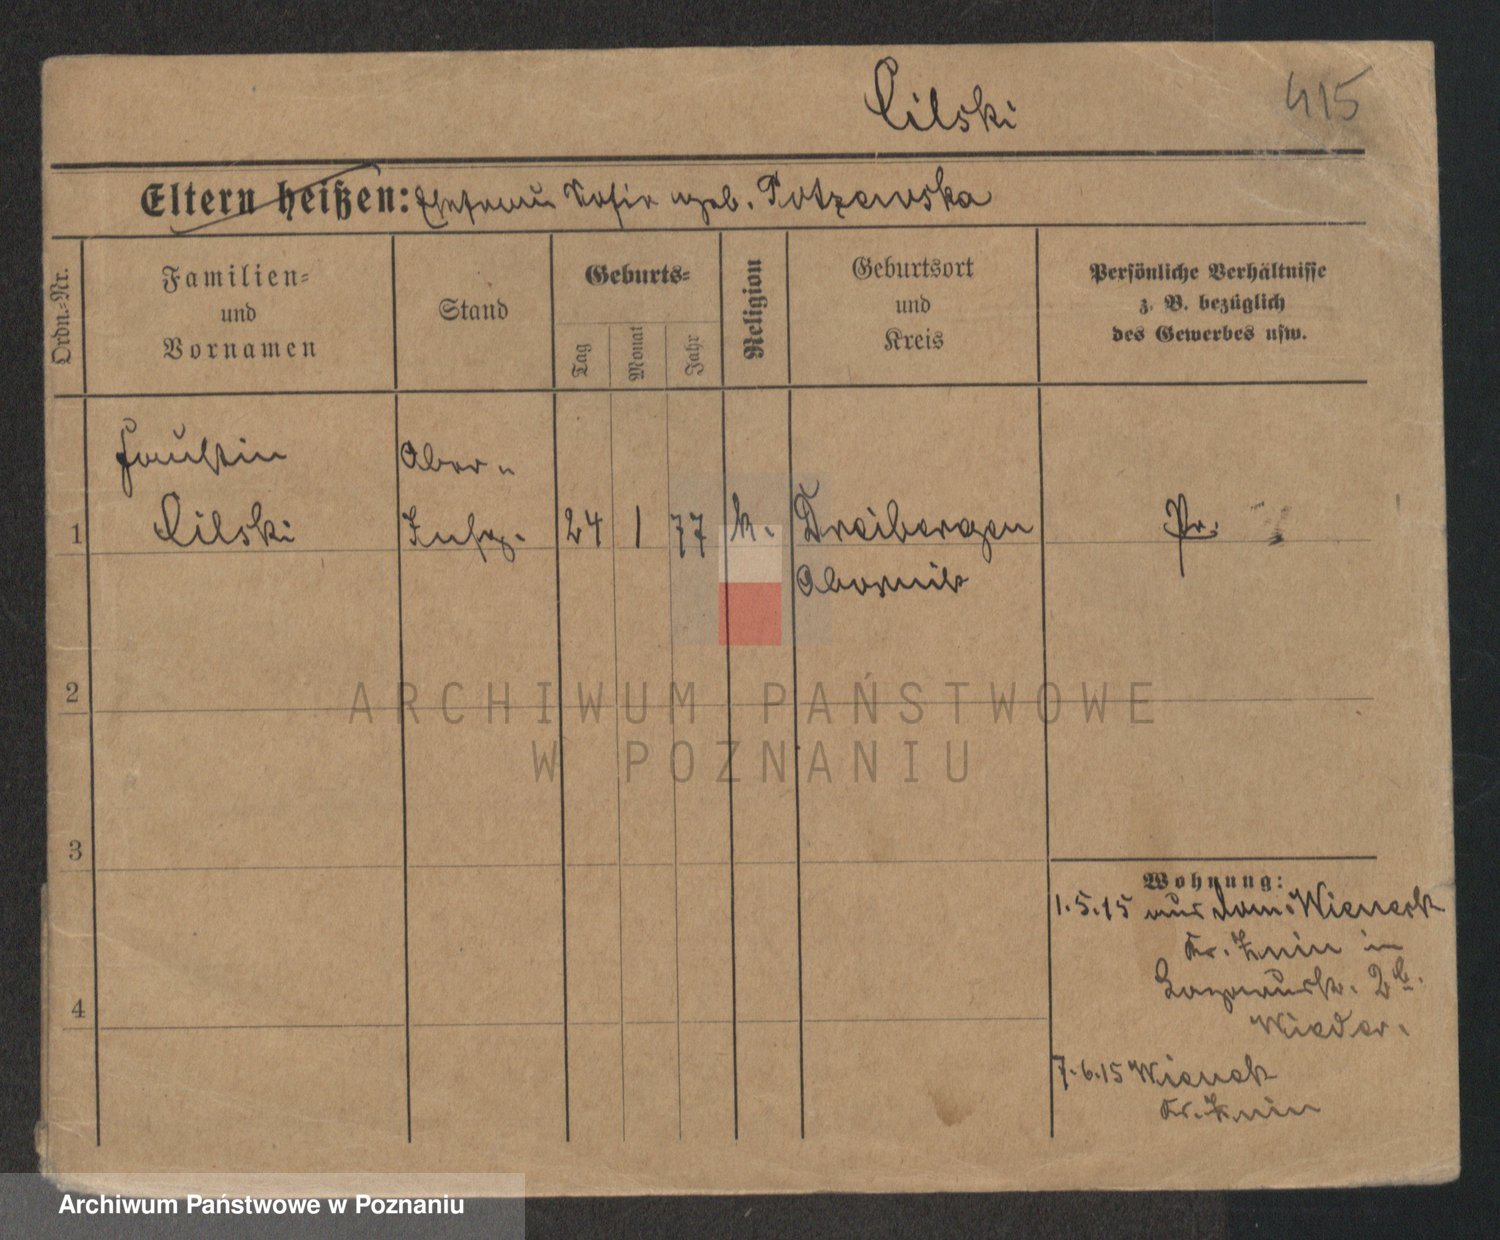 Cilski
415
Eltern heißen: Ehefrau Sofie geb. Potzewska
Ordn.-Nr.
Familien-
und
Vornamen
Stand
Geburts-
Tag
Monat
Jahr
Religion
Geburtsort
und
Kreis
Persönliche Verhältnisse
z. B. bezüglich
des Gewerbes usw.
Faustin
Cilski
Ober-
Insp.
1
24 1 77 k.
Dreibergen
Obornik
Pr.
2
3
4
Wohnung:
1.5.15 aus Dom. Wieneck
Kr. Znin in
2b.
Wieder.
7.6.15 Wieneck
Kr. Znin
ARCHIWUM PAŃSTWOWE
W POZNANIU
Archiwum Państwowe w Poznaniu